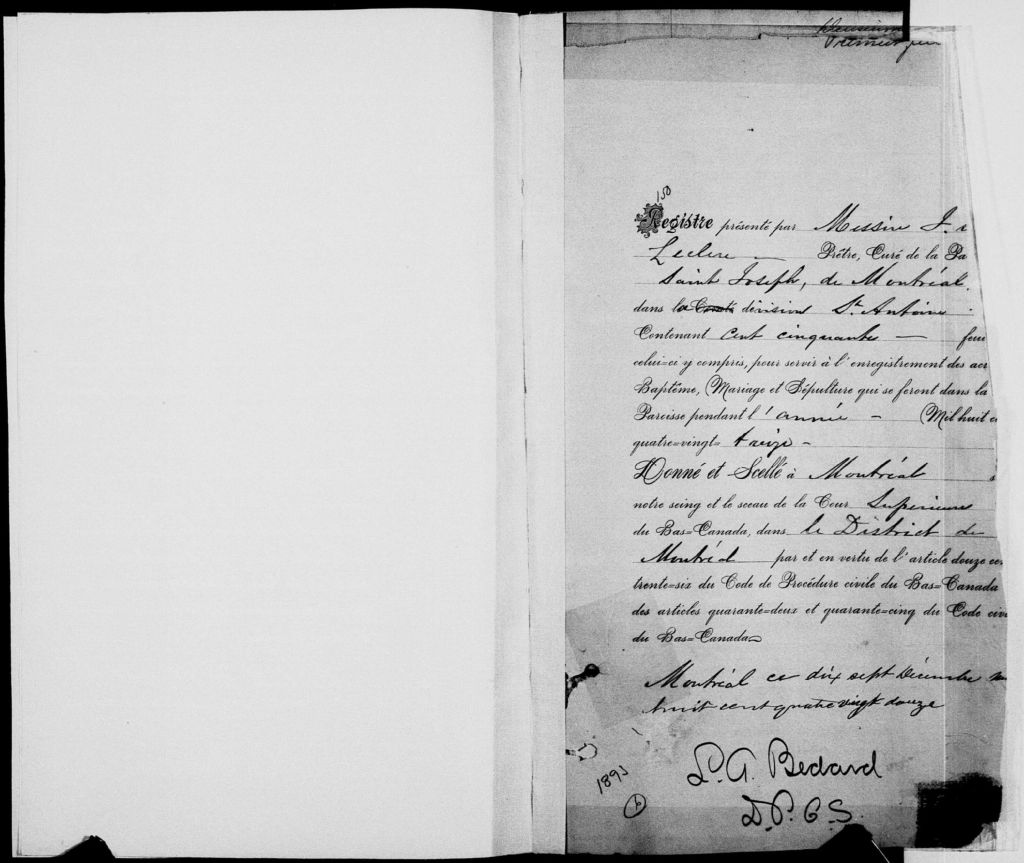 150
Registre présenté par Messire J.
Leclerc — Prêtre, Curé de la Pa
Saint Joseph, de Montréal.
dans la Comté division St. Antoine
Contenant cent cinquante — feu
celui=ci y compris, pour servir à l'enregistrement des act
Baptême, Mariage et Sépulture qui se feront dans la
Paroisse pendant l'année — Mil huit c
quatre=vingt= treize —
Donné et Scellé à Montréal s
notre seing et le sceau de la Cour Supérieure
du Bas=Canada, dans le District de
Montréal par et en vertu de l'article douze cen
trente=six du Code de Procédure civile du Bas=Canada
des articles quarante=deux et quarante=cinq du Code civi
du Bas=Canada
Montréal ce dix sept Décembre m
huit cent quatre vingt douze
L. A. Bedard
D. P. C. S.
1893